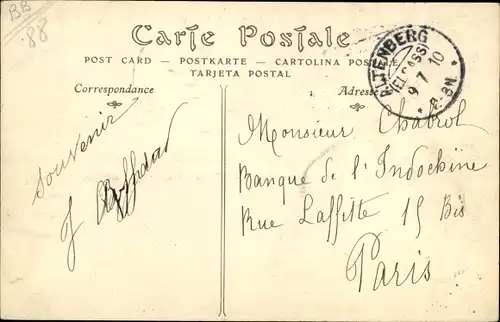 BB
88
Carte Postale
POST CARD — POSTKARTE — CARTOLINA POSTALE
TARJETA POSTAL
Correspondance
Adresse
9 7 10
Souvenir
J
Monsieur Chabrol
Banque de l'Indochine
Rue Laffitte 15 Bis
Paris